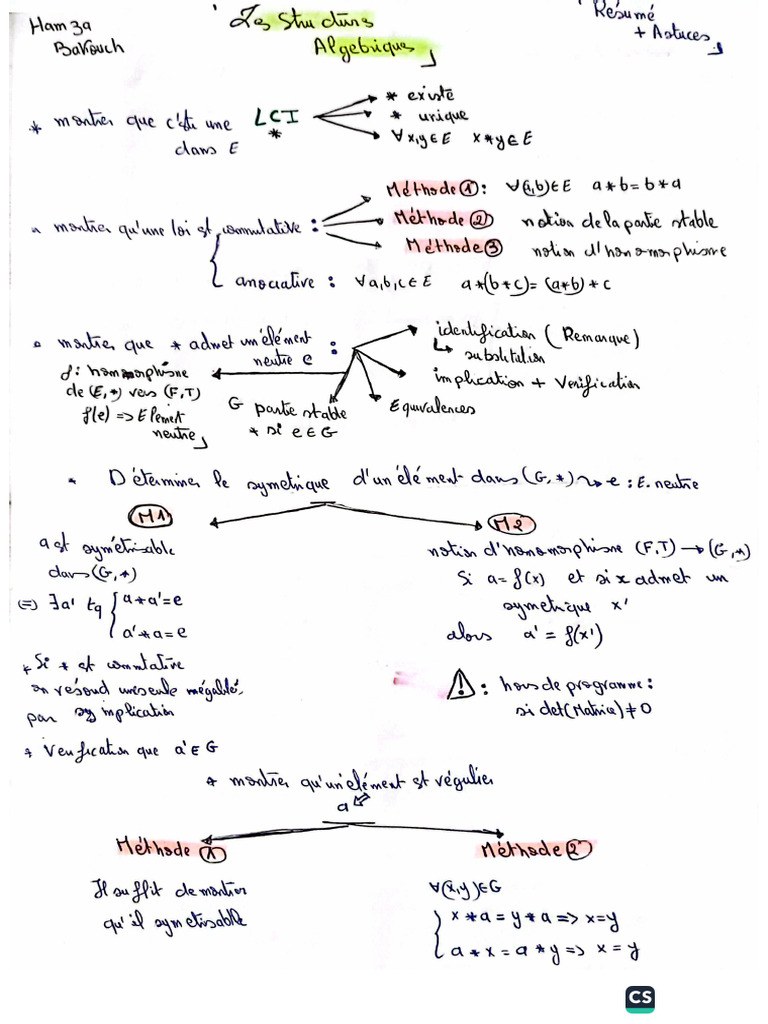 Ham3a
Barouch
Les Structures
Algebriques
Résumé
+ Astuces
* montrer que c'est une LCI
*
dans E
* existe
* unique
∀x,y∈E x*y∈E
montrer qu'une loi st commutative :
Méthode ① : ∀(a,b)∈E a*b=b*a
Méthode ② notion de la partie stable
Méthode ③ notion d'homomorphisme
associative : ∀a,b,c∈E a*(b*c)=(a*b)*c
montrer que * admet un élément
neutre e :
identification (Remarque)
↳ substitution
implication + Verification
Equivalences
G partie stable
* si e∈G
f: homomorphisme
de (E,*) vers (F,T)
f(e) => Element
neutre
* Déterminer le symetrique d'un élément dans (G,*) ⇝ e : E. neutre
M1
a st symétrisable
dans (G,*)
⇔ ∃a' tq { a*a'=e
a'*a=e
* Si * st commutative
on résoud une seule inégalité
par implication
* Verification que a'∈G
M2
notion d'homomorphisme (F,T) → (G,*)
Si a=f(x) et si x admet un
symetrique x'
alors a' = f(x')
⚠ : hors de programme :
si det(Matrice)≠0
* montrer qu'un élément st régulier
a
Méthode ①
Il suffit de montrer
qu'il symetrisable
Méthode ②
∀(x,y)∈G
{ x*a = y*a => x=y
a*x = a*y => x = y
CS